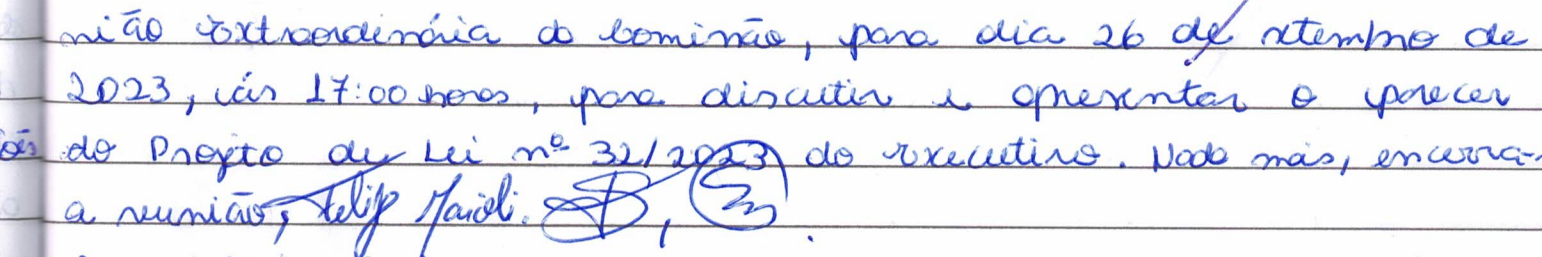 nião extraordinária da comissão, para dia 26 de setembro de
2023, às 17:00 horas, para discutir e apresentar o parecer
do Projeto de Lei nº 32/2023 do executivo. Nada mais, encerra-
a reunião, Felip Maioli.